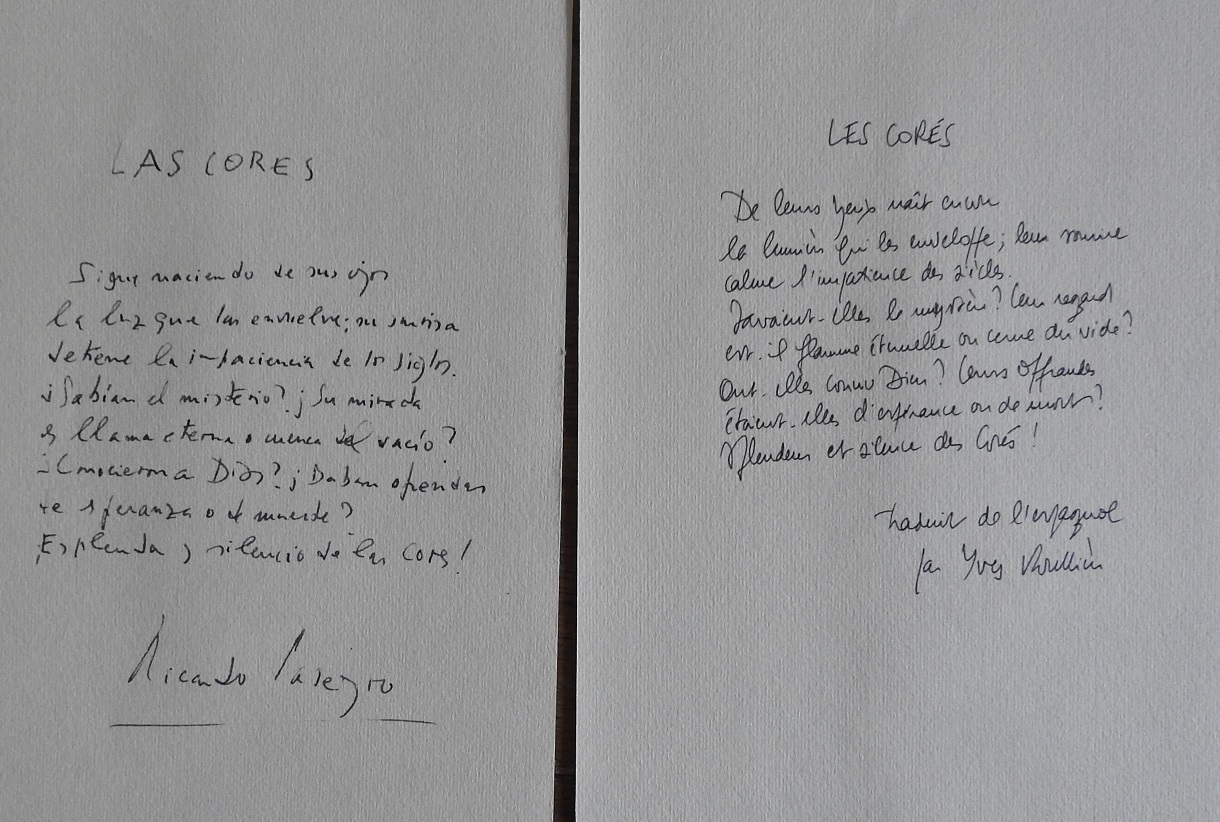 LAS CORES
Sigue naciendo de sus ojos
la luz que las envuelve; su sonrisa
detiene la impaciencia de los siglos.
¿Sabían el misterio? ¿Su mirada
es llama eterna o cuenca del vacío?
¿Conocieron a Dios? ¿Daban ofrendas
de esperanza o de muerte?
¡Esplendor y silencio de las Cores!
Ricardo Paseyro
LES CORÉS
De leurs yeux naît encore
la lumière qui les enveloppe ; leur sourire
calme l'impatience des siècles.
Savaient-elles le mystère ? Leur regard
est-il flamme éternelle ou cerne du vide ?
Ont-elles connu Dieu ? Leurs offrandes
étaient-elles d'espérance ou de mort ?
Splendeur et silence des Corés !
Traduit de l'espagnol
par Yves Roullière